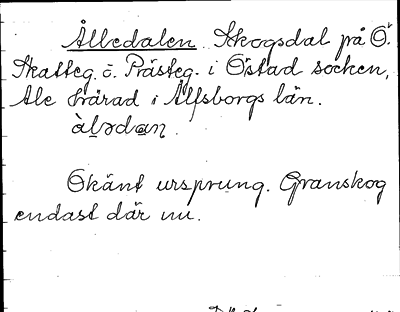 Ålledalen Skogsdal på Ö.
Skatteg. o. Prästeg. i Östad socken,
Ale härad i Älfsborgs län.
àlədan.
Okänt ursprung. Granskog
endast där nu.